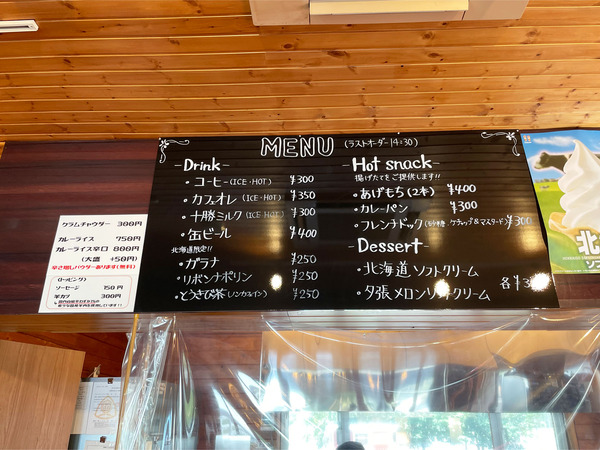 MENU (ラストオーダー14:30)
-Drink-
・コーヒー(ICE・HOT) ¥300
・カフェオレ(ICE・HOT) ¥350
・十勝ミルク(ICE・HOT) ¥300
・缶ビール ¥400
北海道限定!!
・ガラナ ¥250
・リボンナポリン ¥250
・とうきび茶(ノンカフェイン) ¥250
-Hot snack-
揚げたてをご提供します!!
・あげもち(2本) ¥400
・カレーパン ¥300
・フレンチドック(or砂糖 ケチャップ&マスタード) ¥300
-Dessert-
・北海道ソフトクリーム
・夕張メロンソフトクリーム
各¥3
クラムチャウダー 300円
カレーライス 750円
カレーライス辛口 800円
(大盛 +50円)
辛さ増しパウダーあります(無料)
(トッピング)
ソーセージ 150円
羊カツ 300円
北
ソフ